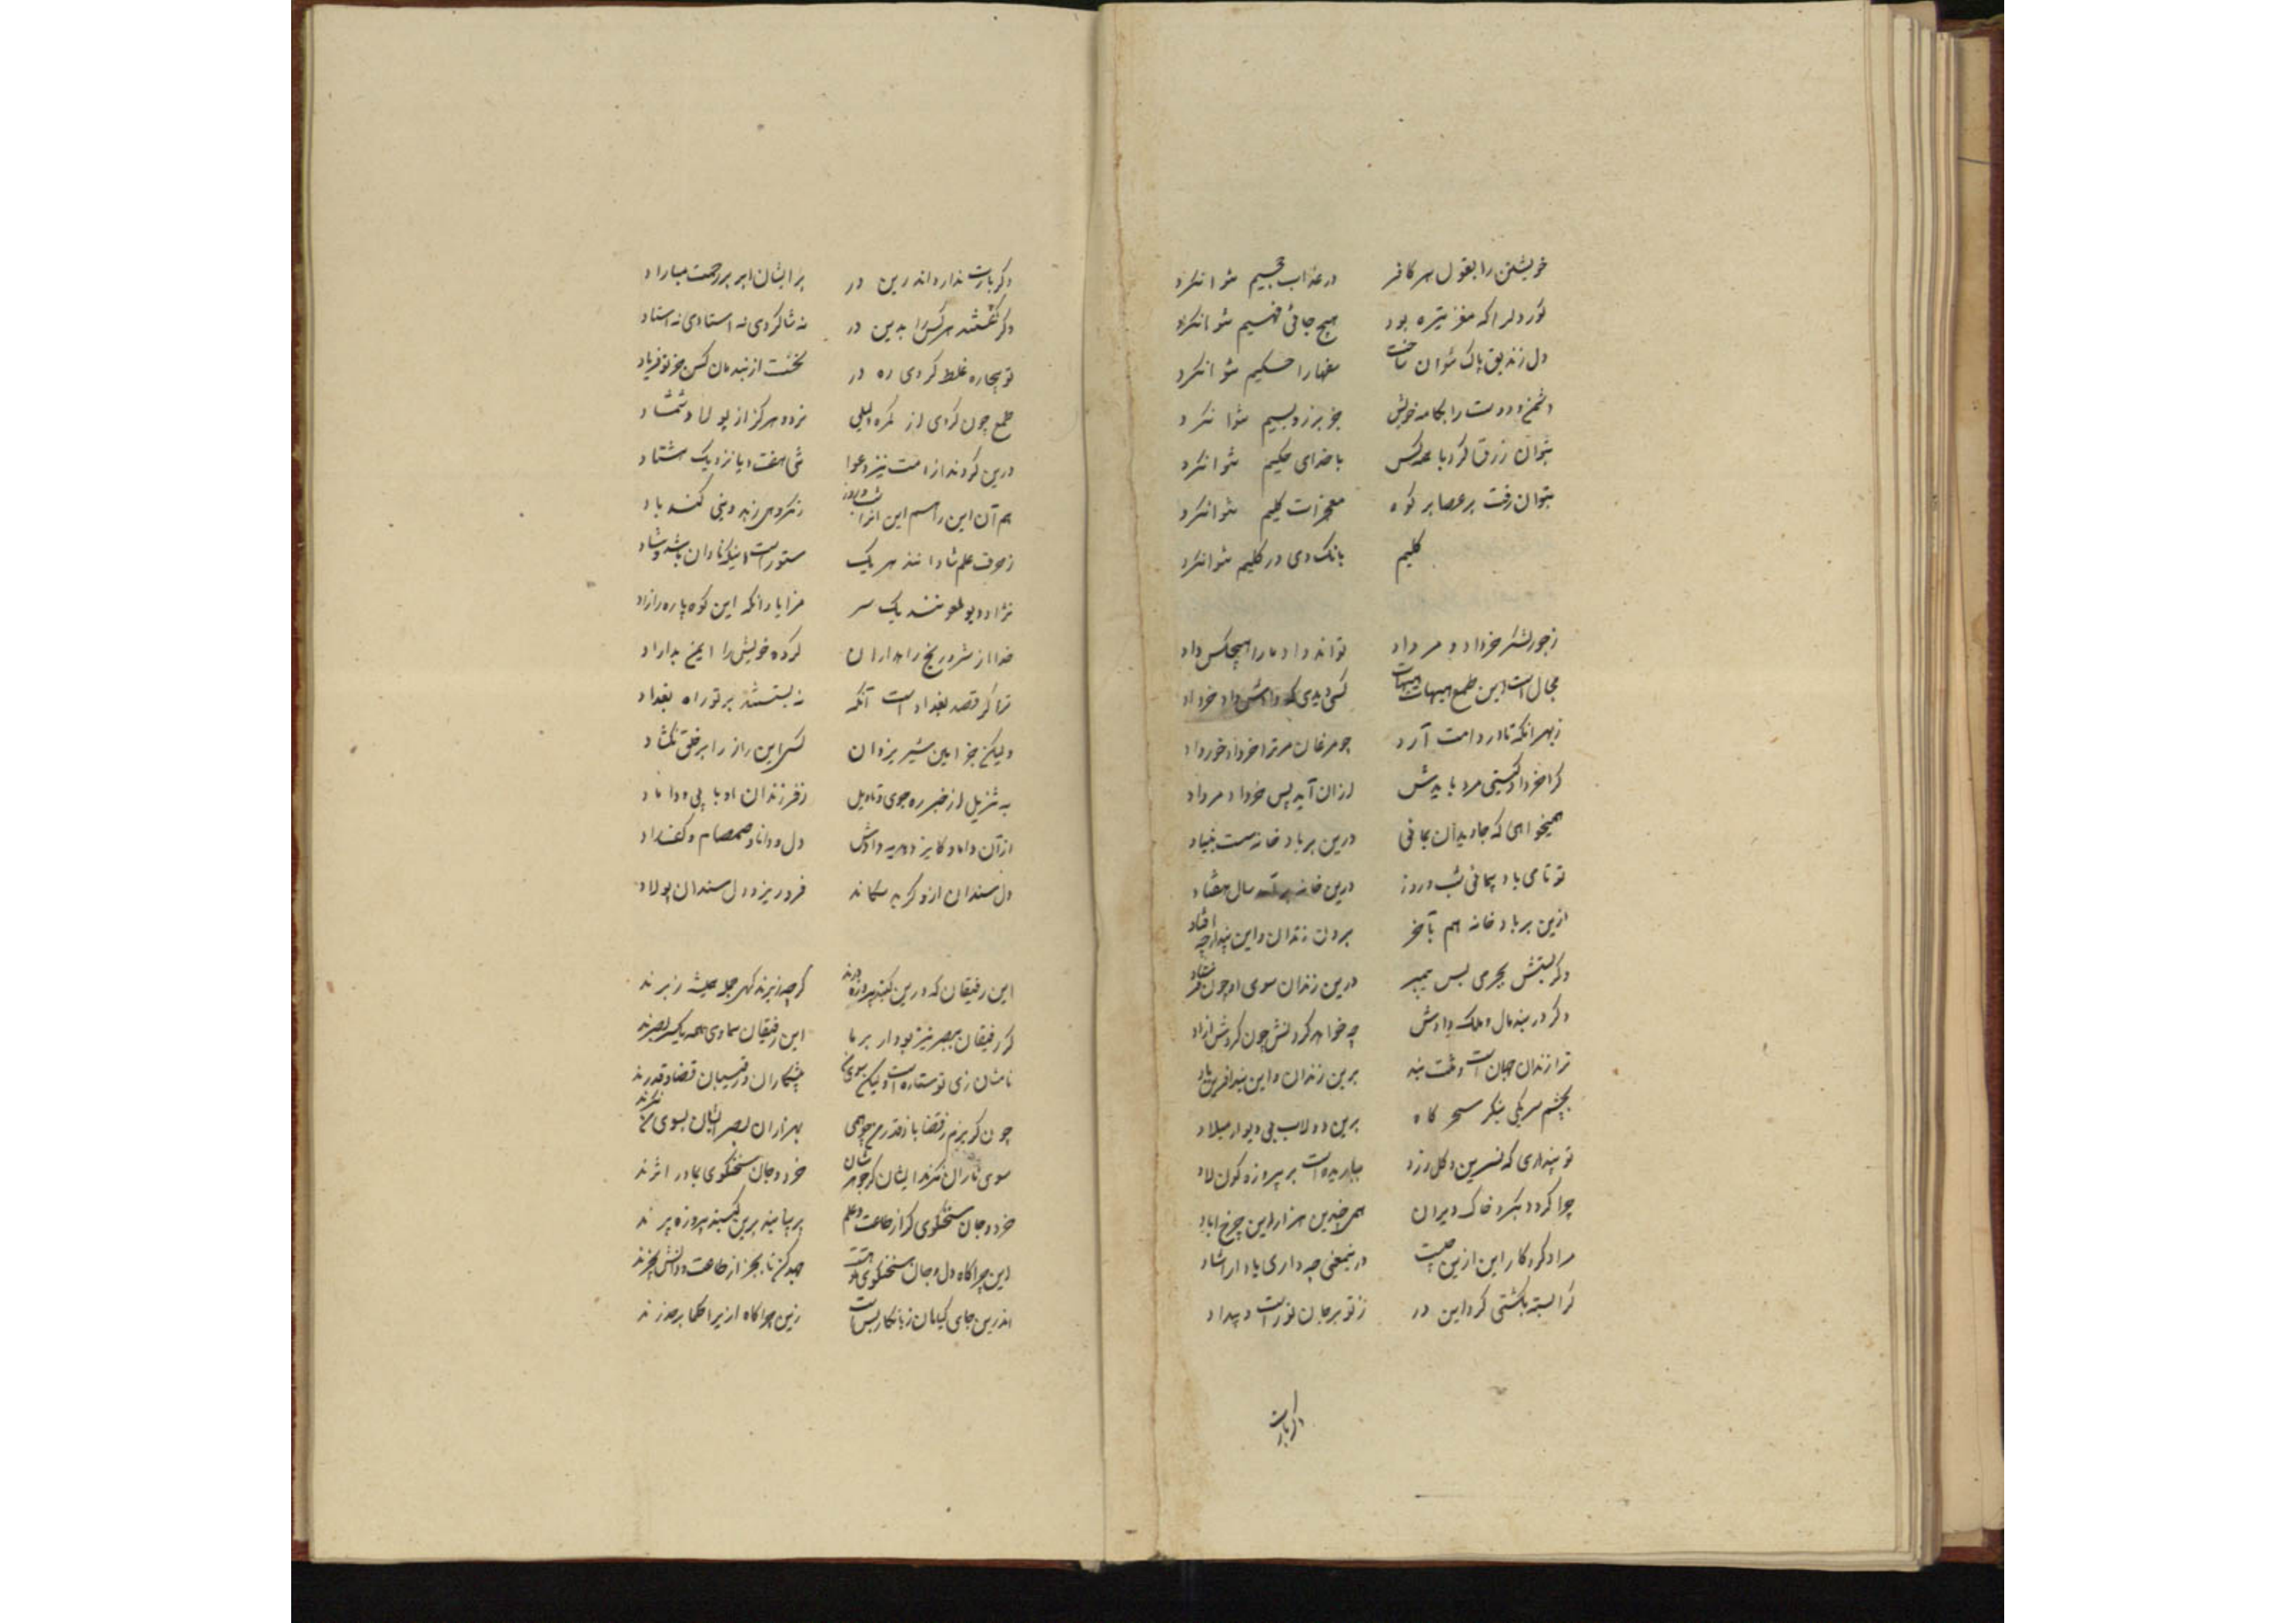 خویشتن را بقول هر کافر در عذاب جحیم نتوانکرد
کور دلرا که مغز تیره بود هیچ جافی فهیم نتوانکرد
دل زندیق پاک نتوان ساخت سفها را حکیم نتوانکرد
دشمن و دوست را بکامه خویش جز برز و بسیم نتوانکرد
بتوان زرق کرد با همه کس با خدای حکیم نتوانکرد
بتوان رفت بر عصا بر کوه معجزات کلیم نتوانکرد
کلیم بانک دی در کلیم نتوانکرد
ز جور لشکر خرداد و مرداد تواند داد ما را هیچکس داد
محال است این طمع هیهات هیهات کسی دیدی که دادش داد خرداد
ز بهر انکه تا در دامت آرد چو مرغان مر ترا خرداد خور داد
کرا خرداد کیتی مرد بایدش ازان آید پس خرداد مرداد
همیخواهی که جاویدان بمانی درین بر باد خانه سست بنیاد
تو تا می باد پیمائی شب و روز درین خانه بر آمد سال هفتاد
ازین بر باد خانه هم بآخر برون زندان و این بند ارچه افتاد
وکر بستش بجرمی پس پیمبر درین زندان سوی او چون فرستاد
وکر در بند مال و ملک دادش چه خواهد کردنش چون کردش ازاد
ترا زندان جهان است و تنت بند برین زندان و این بند آفرین باد
بچشم سر یکی بنکر سحرکاه برین دولاب بی دیوار میلاد
تو پنداری که نسرین و کل زرد بباریده است بر پیروزه کون لاد
چرا کردد بکرد خاک ویران همی چندین هزار این چرخ اباد
مراد کردکار این ازین چیست در نیمعنی چه داری یاد از استاد
کرا بسته بکشتی کرد این در ز تو بر جان تو رست و بیداد
اکر بارت
وکر بارت نداد و اندرین در بر ایشان ابر بر رحمت مباراد
وکر نکشند هرکس را بدین در نه شاکردی نه استادی نه استاد
تو بیچاره غلط کردی ره در نخست از بندمان کس جز تو فریاد
طمع چون کردی از کمره دلیلی نروید هرکز از پولاد شمشاد
درین کردند از امت نیز دعوا شی هفت و یا نزدیک هشتاد
هم آن این را هم این انرا شب و روز
ز حرف علم شادانند هر یک ستور است اینکه نادان باشد و شاد
نژاد دیو ملعونند یک سر مزایا د انکه این کوه پاره را زاد
خدا از شر و رنج راهداران کرده خویش را ایمن بداراد
ترا کر قصد بغداد است آنکه نه بستستند بر تو راه بغداد
ولیکن جز امین شیر یزدان کس این راز را بر خلق نکشاد
به تنزیل از خبر ره جوی و تاویل ز فرزندان او یابی و داماد
از آن داماد کایزد هدیه دادش دل و دانا و صمصام و کف راد
دل سندان ازو کر به سکاند فرو ریزد دل سندان پولاد
این رفیقان که درین کنبد پیروزه درند کرچه زیرند کهی جمله همیشه زبرند
کر رفیقان ببصر نیز بودار بر ما این رفیقان سماوی همه یکسر بصرند
نامشان زی تو ستاره است ولیکن سوی من پیشکاران و رقیبان قضا و قدرند
چون کریزم ز قضا یا ز قدر من چو همی بهزاران بصر ایشان بسوی من نکرند
سوی ما زان نکرند ایشان کز جوهرشان خرد و جان سخنکوی بما در اثرند
خرد و جان سخنکوی کر از طاعت و علم پر بیابند برین کنبد پیروزه پرند
این چراکاه دل و جان سخنکوی توهست جهد کن تا بجز از طاعت و دانش نچرند
اندرین جای کیاهان زیانکار بس است زین چراکاه ازیرا حکما بر حذرند